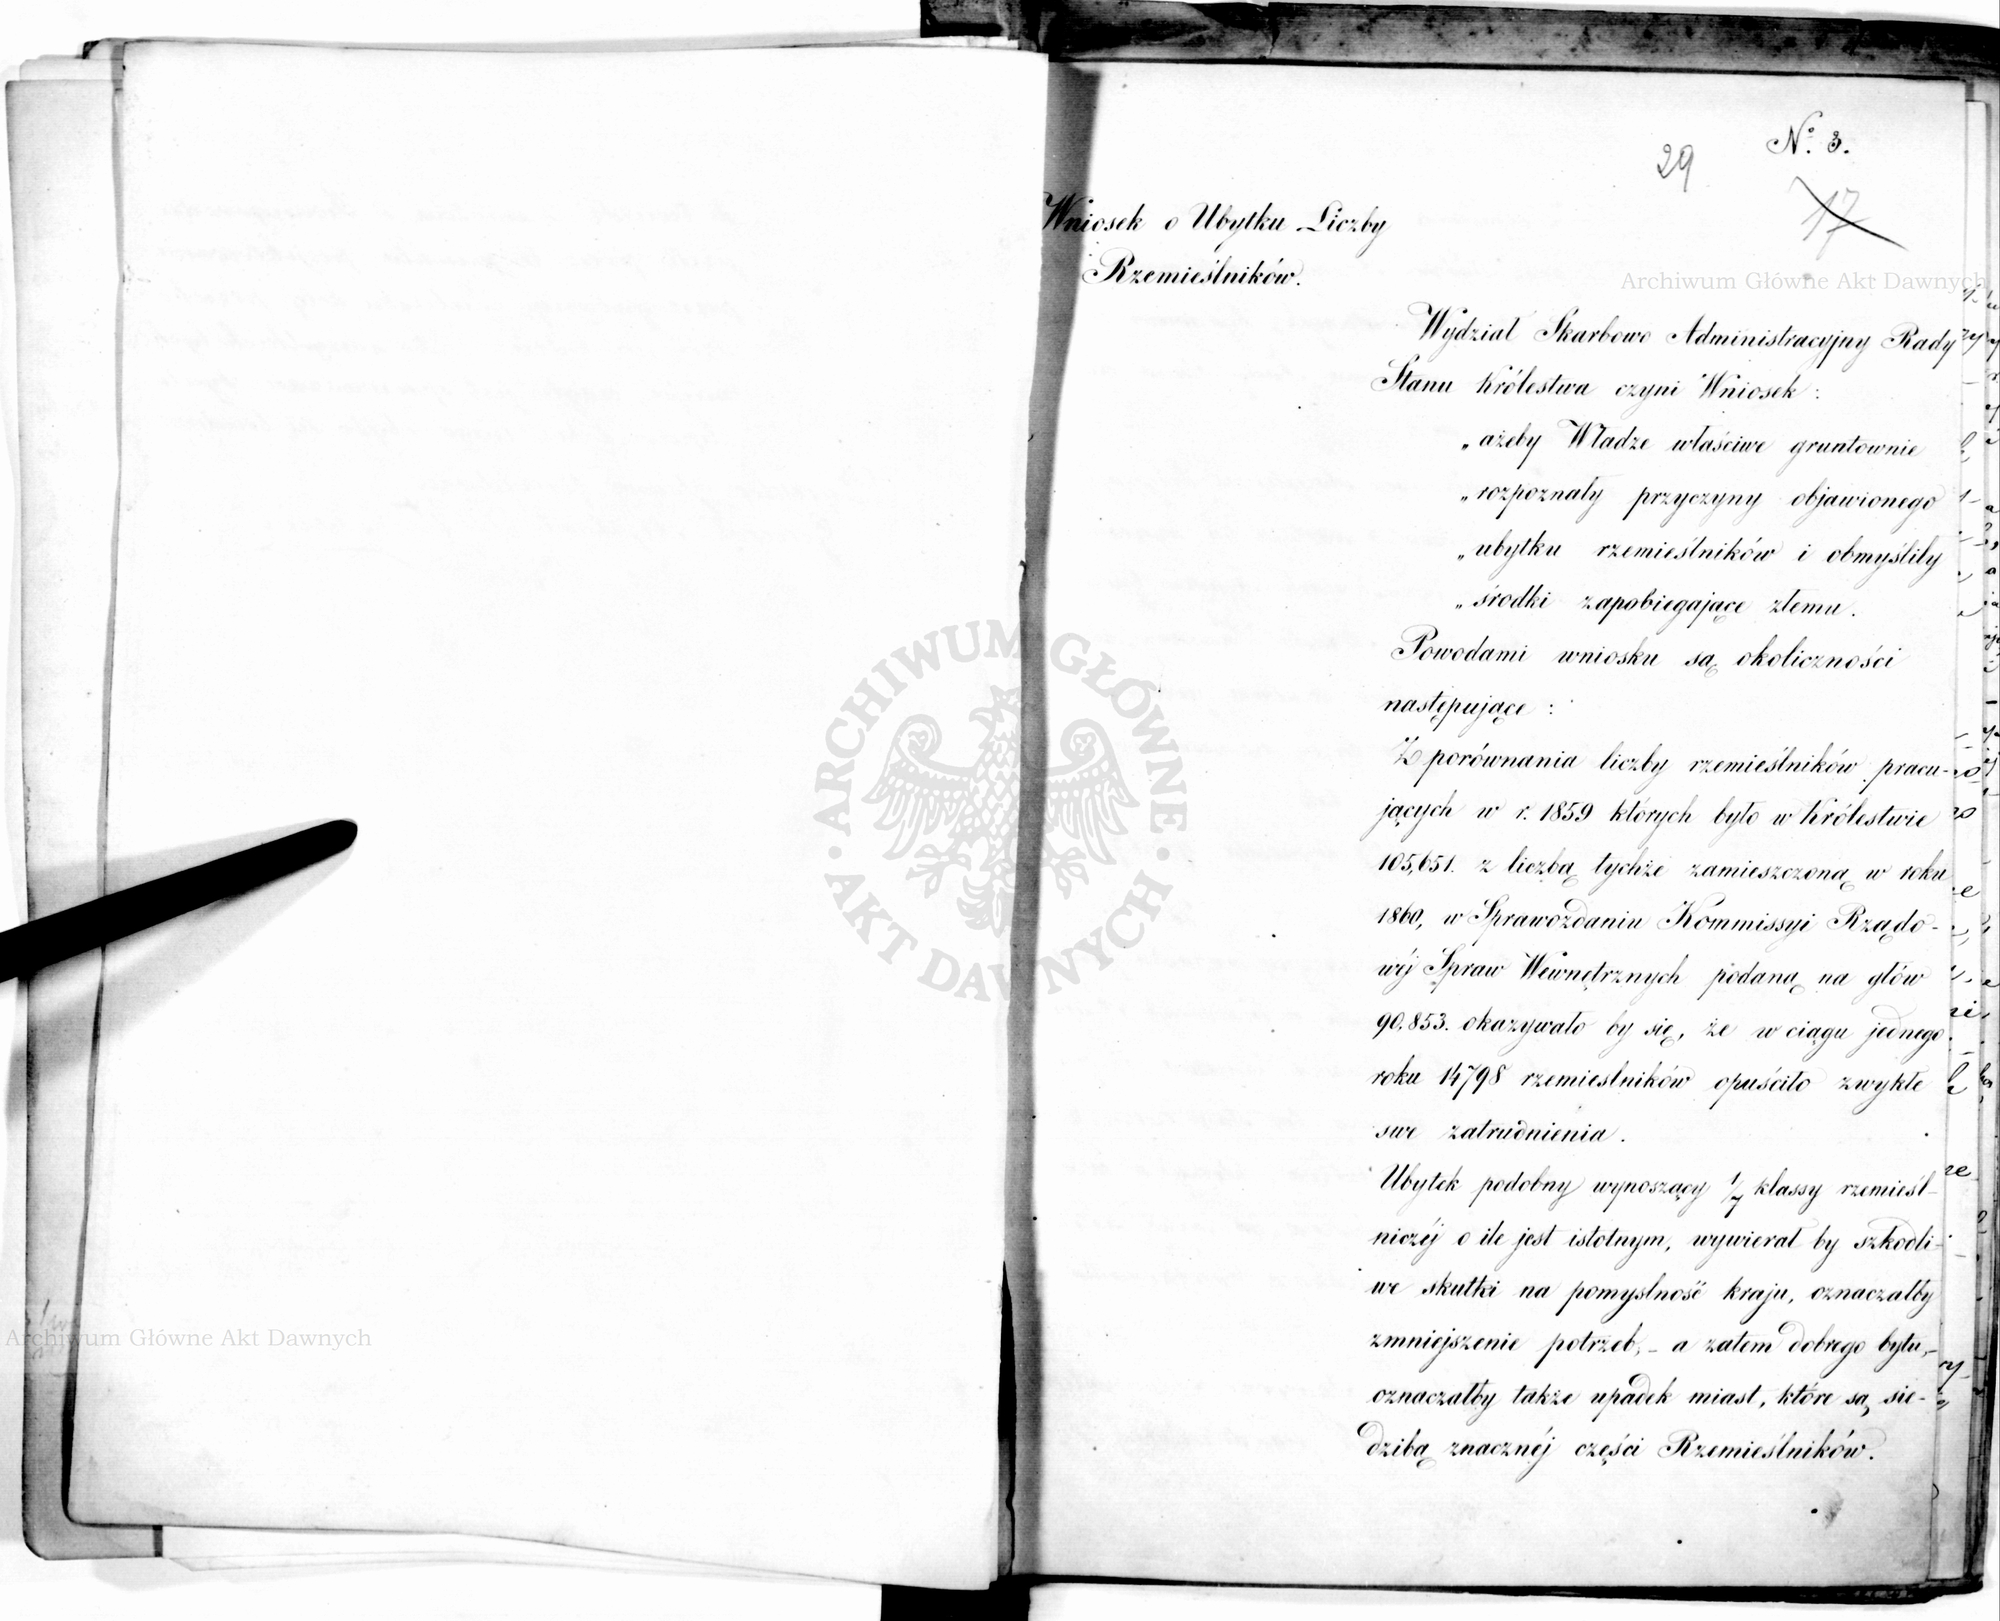 No. 3.
29
17
Wniosek o Ubytku Liczby
Rzemieślników.
Archiwum Główne Akt Dawnych
Wydział Skarbowo Administracyjny Rady
Stanu Królestwa czyni Wniosek:
„ażeby Władze właściwe gruntownie
„rozpoznały przyczyny objawionego
„ubytku rzemieślników i obmyśliły
„środki zapobiegające złemu.
Powodami wniosku są okoliczności
następujące:
Z porównania liczby rzemieślników pracu-
jących w r. 1859 których było w Królestwie
105,651. z liczbą tychże zamieszczoną w roku
1860, w Sprawozdaniu Kommissyi Rządo-
wéj Spraw Wewnętrznych podaną na głów
90.853. okazywało by się, że w ciągu jednego
roku 14798 rzemieslników opuściło zwykłe
swe zatrudnienia.
Ubytek podobny wynoszący 1/7 klassy rzemieśl-
niczéj o ile jest istotnym, wywierał by szkodli-
we skutki na pomyslność kraju, oznaczałby
zmniejszenie potrzeb, - a zatem dobrego bytu, -
oznaczałby także upadek miast, które są sie-
dzibą znacznéj części Rzemieślników.
ARCHIWUM GŁÓWNE
AKT DAWNYCH
Archiwum Główne Akt Dawnych